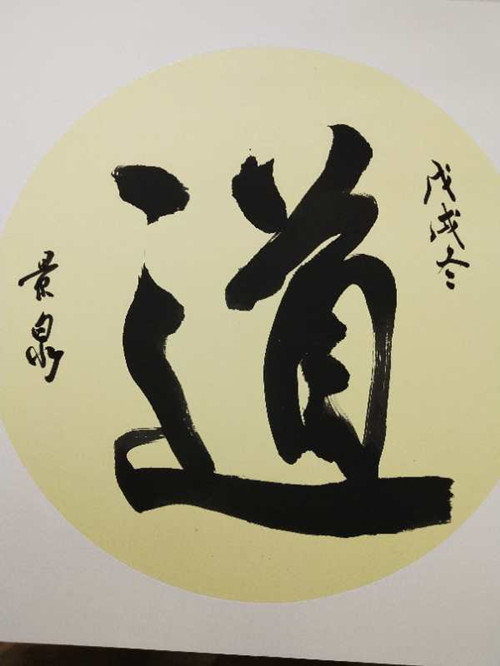 戊戌冬
道
景泉